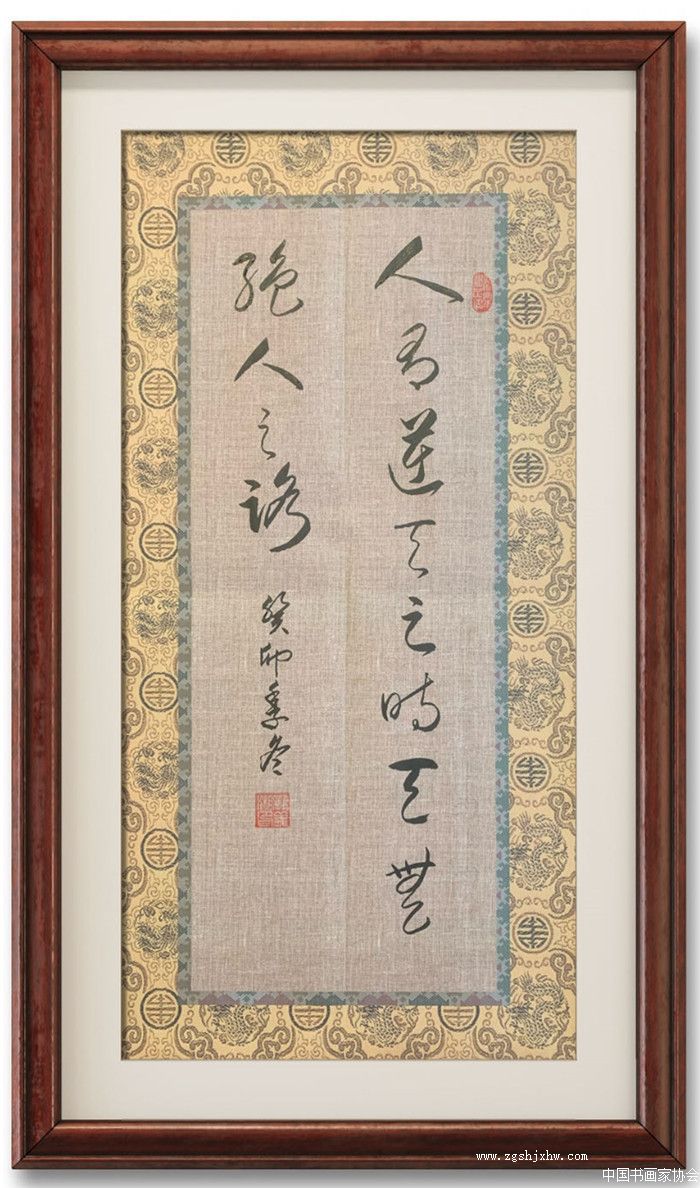 人有逆天之時天無
絕人之路 癸卯季冬
www.zgshjxhw.com
中国书画家协会